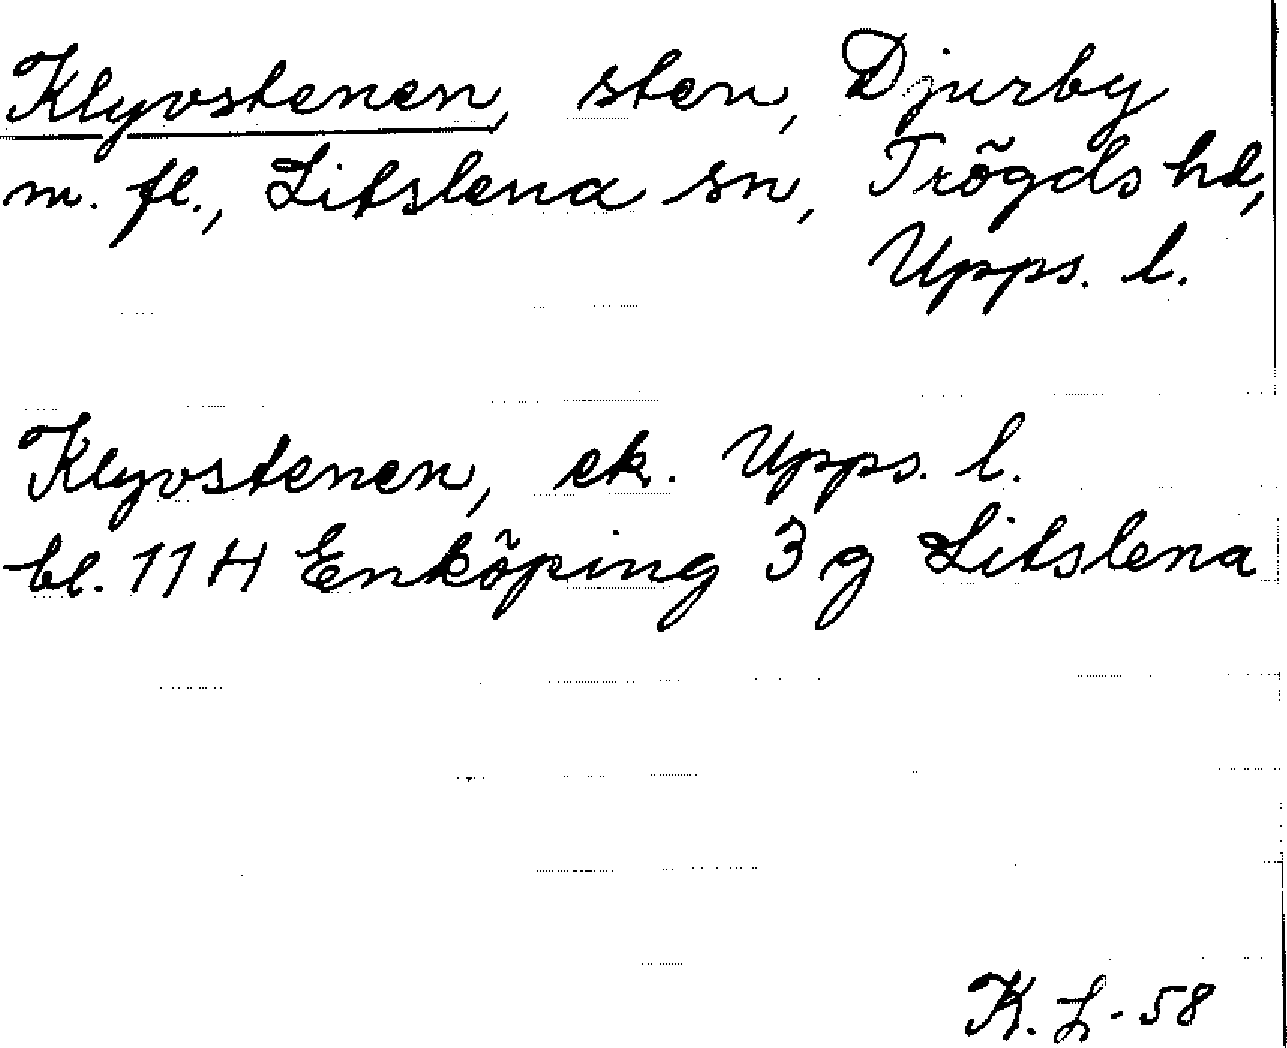 Klyvstenen, sten, Djurby
m. fl., Litslena sn, Trögds hd,
Upps. l.
Klyvstenen, ek. Upps. l.
bl. 11 H Enköping 3 g Litslena
K. L-58